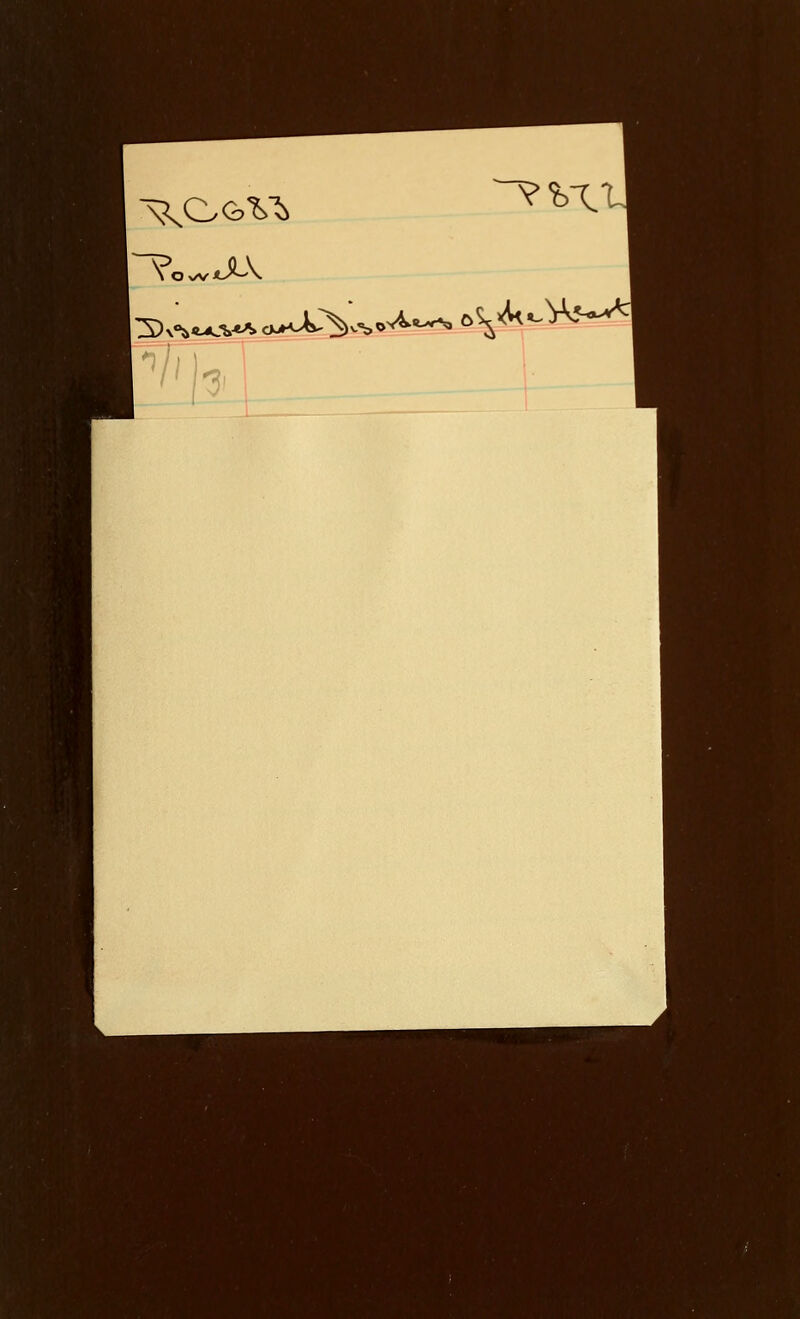 RC683 P872
Powell
Diseases and Disorders of the Heart
7/1/31